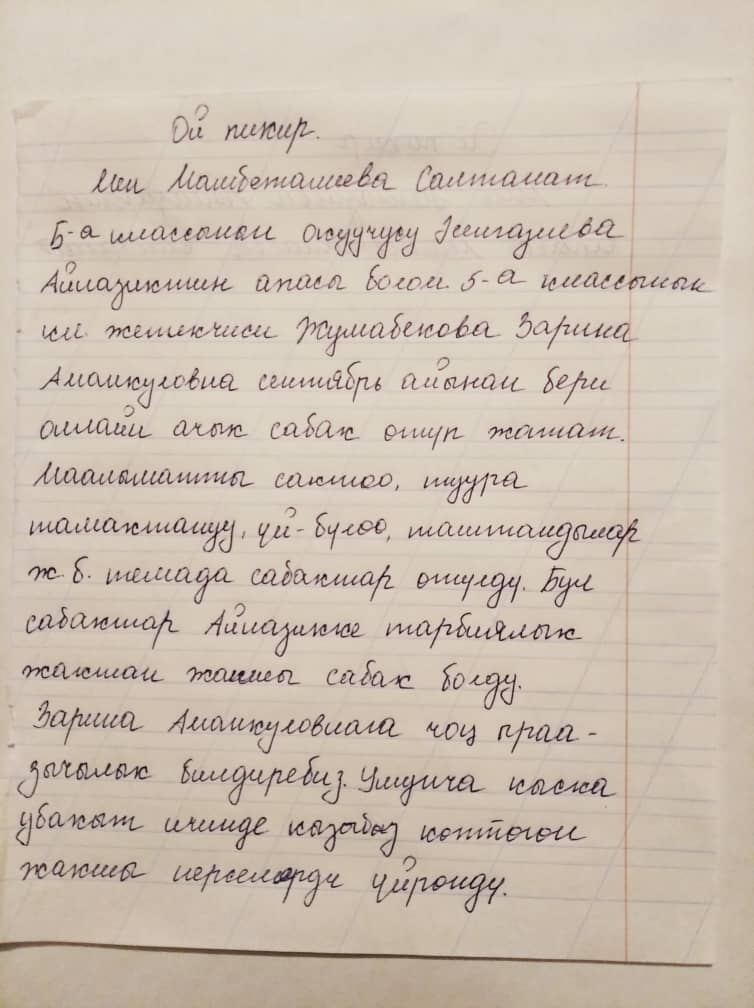 Ой пикир.
Мен Мамбеталиева Салтанат
5-а классынын окуучусу Эсигазиева
Айназиктин апасы болом. 5-а классынын
кл. жетекчиси Жумабекова Зарина
Аманкуловна сентябрь айынан бери
онлайн ачык сабак отуп жатат.
Маалыматты сактоо, туура
тамактануу, үй-бүлөө, таштандылар
ж. б. темада сабактар отулду. Бул
сабактар Айназикке тарбиялык
жактан жакшы сабак болду.
Зарина Аманкуловнага чоң ыраа-
зычылык билдиребиз. Ушунча кыска
убакыт ичинде кызыбыз көптөгөн
жакшы нерселерди үйрөнду.